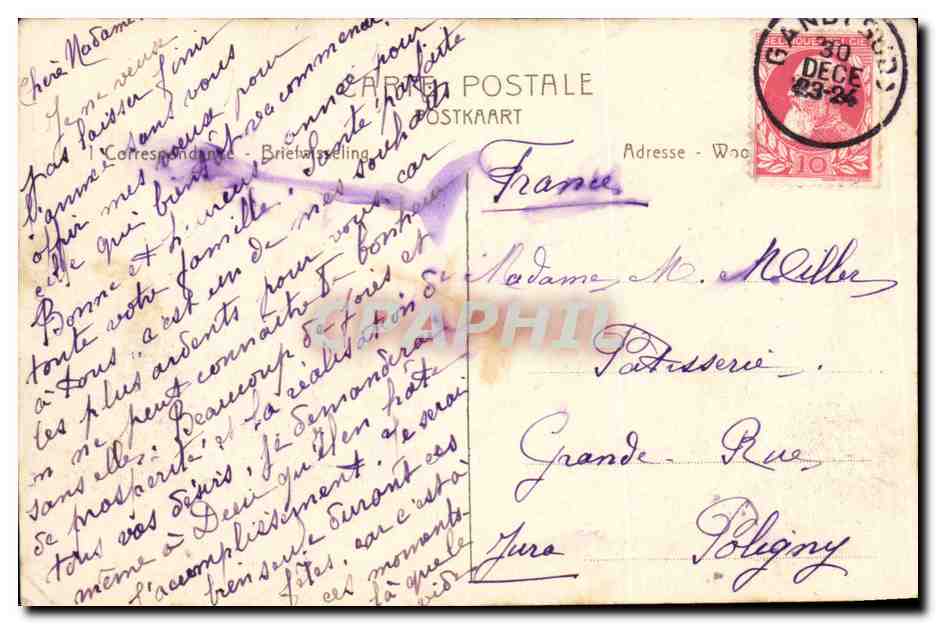 Chère Madame.
Je ne veux
pas laisser finir
l'année sans vous
offrir mes voeux pour
celle qui bientôt va commencer.
Bonne et heureuse année pour
toute votre famille. Santé parfaite
à tous: c'est un de mes souhaits
les plus ardents pour vous, car
on ne peut connaître de bonheur
sans elle. Beaucoup de joies et
de prospérité et la réalisation de
tous vos désirs, je demanderai
même à Dieu qu'il en hâte
l'accomplissement. Je serai
bien seule durant ces
fêtes, car c'est à
ces moments-
là que le
vide
CARTE POSTALE
POSTKAART
Correspondance - Briefwisseling
Adresse -
BELGIQUE BELGIE
10
GAND (SUD)
30
DECE
23-24
France
Madame M. Miller
Patisserie.
Grande Rue
Poligny
Jura
CPAPHIL